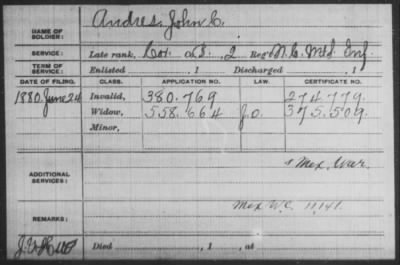 NAME OF SOLDIER: Andres, John C.
SERVICE: Late rank, Co. 2 Reg't N.C. Mtd. Inf
TERM OF SERVICE: Enlisted , 1 Discharged , 1
DATE OF FILING. CLASS. APPLICATION NO. LAW. CERTIFICATE NO.
1880. June 24 Invalid, 380.769 274.779.
Widow, 558.664 375.509.
Minor,
ADDITIONAL SERVICES: Mex. War.
REMARKS: Mex W.C. 11,141.
Died , 1 , at